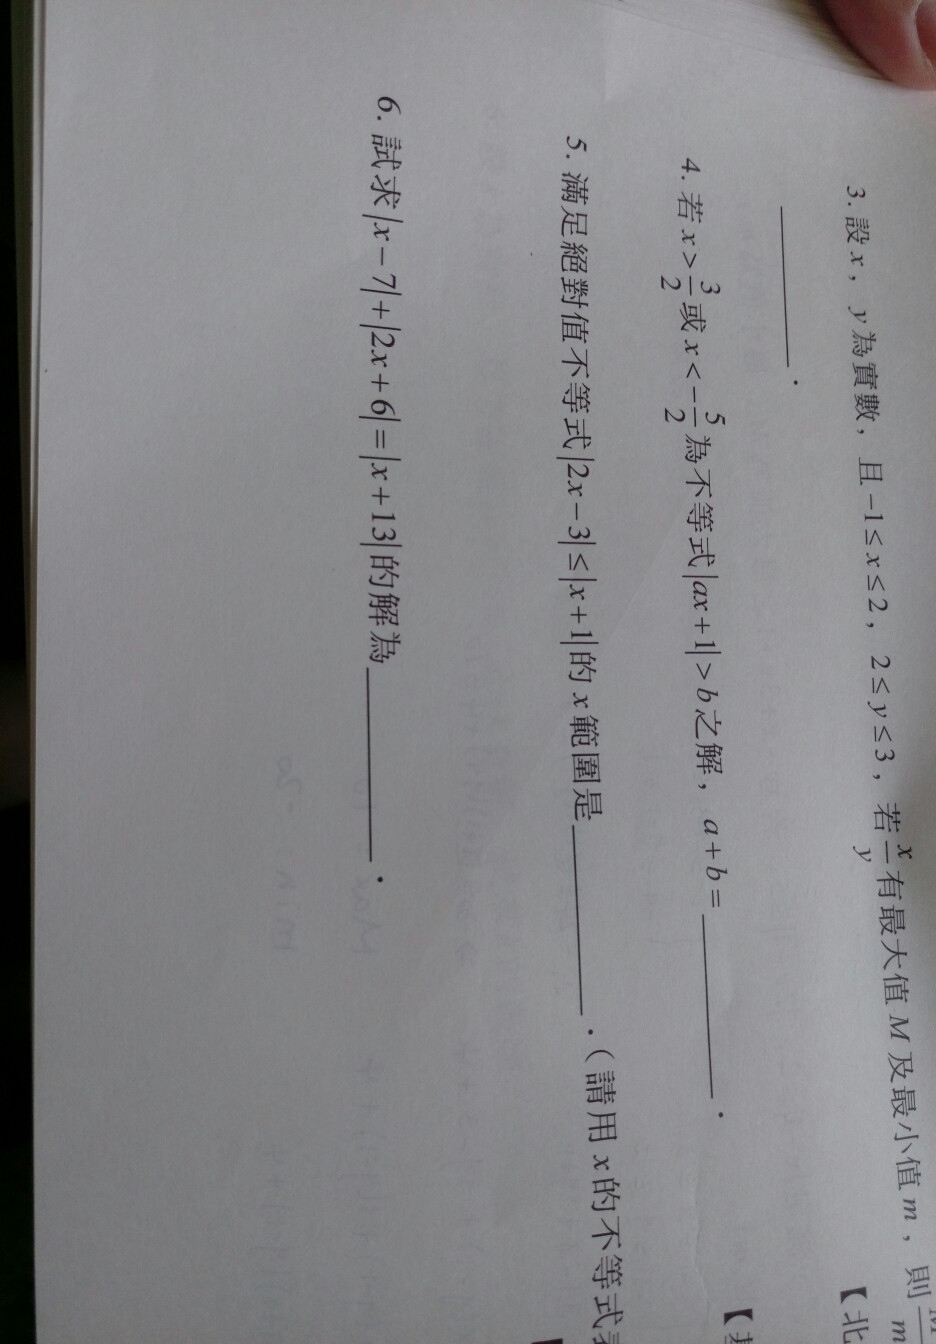 3. 設 x，y 為實數，且 -1≤x≤2，2≤y≤3，若 x/y 有最大值 M 及最小值 m，則 M/m
【北
______．
4. 若 x>3/2 或 x<-5/2 為不等式|ax+1|>b之解，a+b=______．
【
5. 滿足絕對值不等式|2x-3|≤|x+1|的 x 範圍是______．（請用 x 的不等式
6. 試求|x-7|+|2x+6|=|x+13|的解為______．